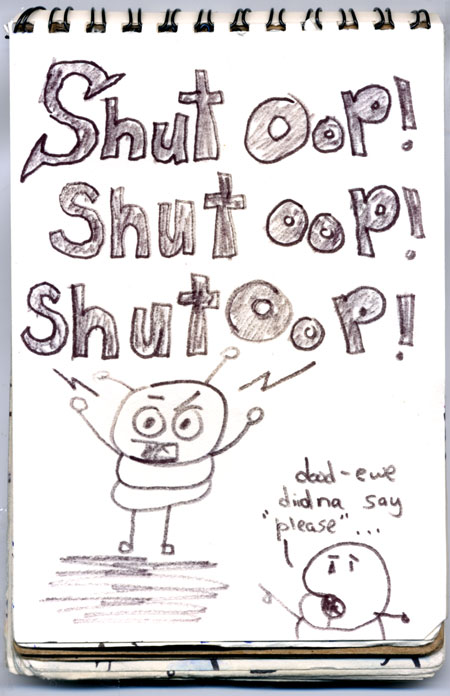 Shut oop!
Shut oop!
Shut Oop!
dad-ewe
didna say
"please"...